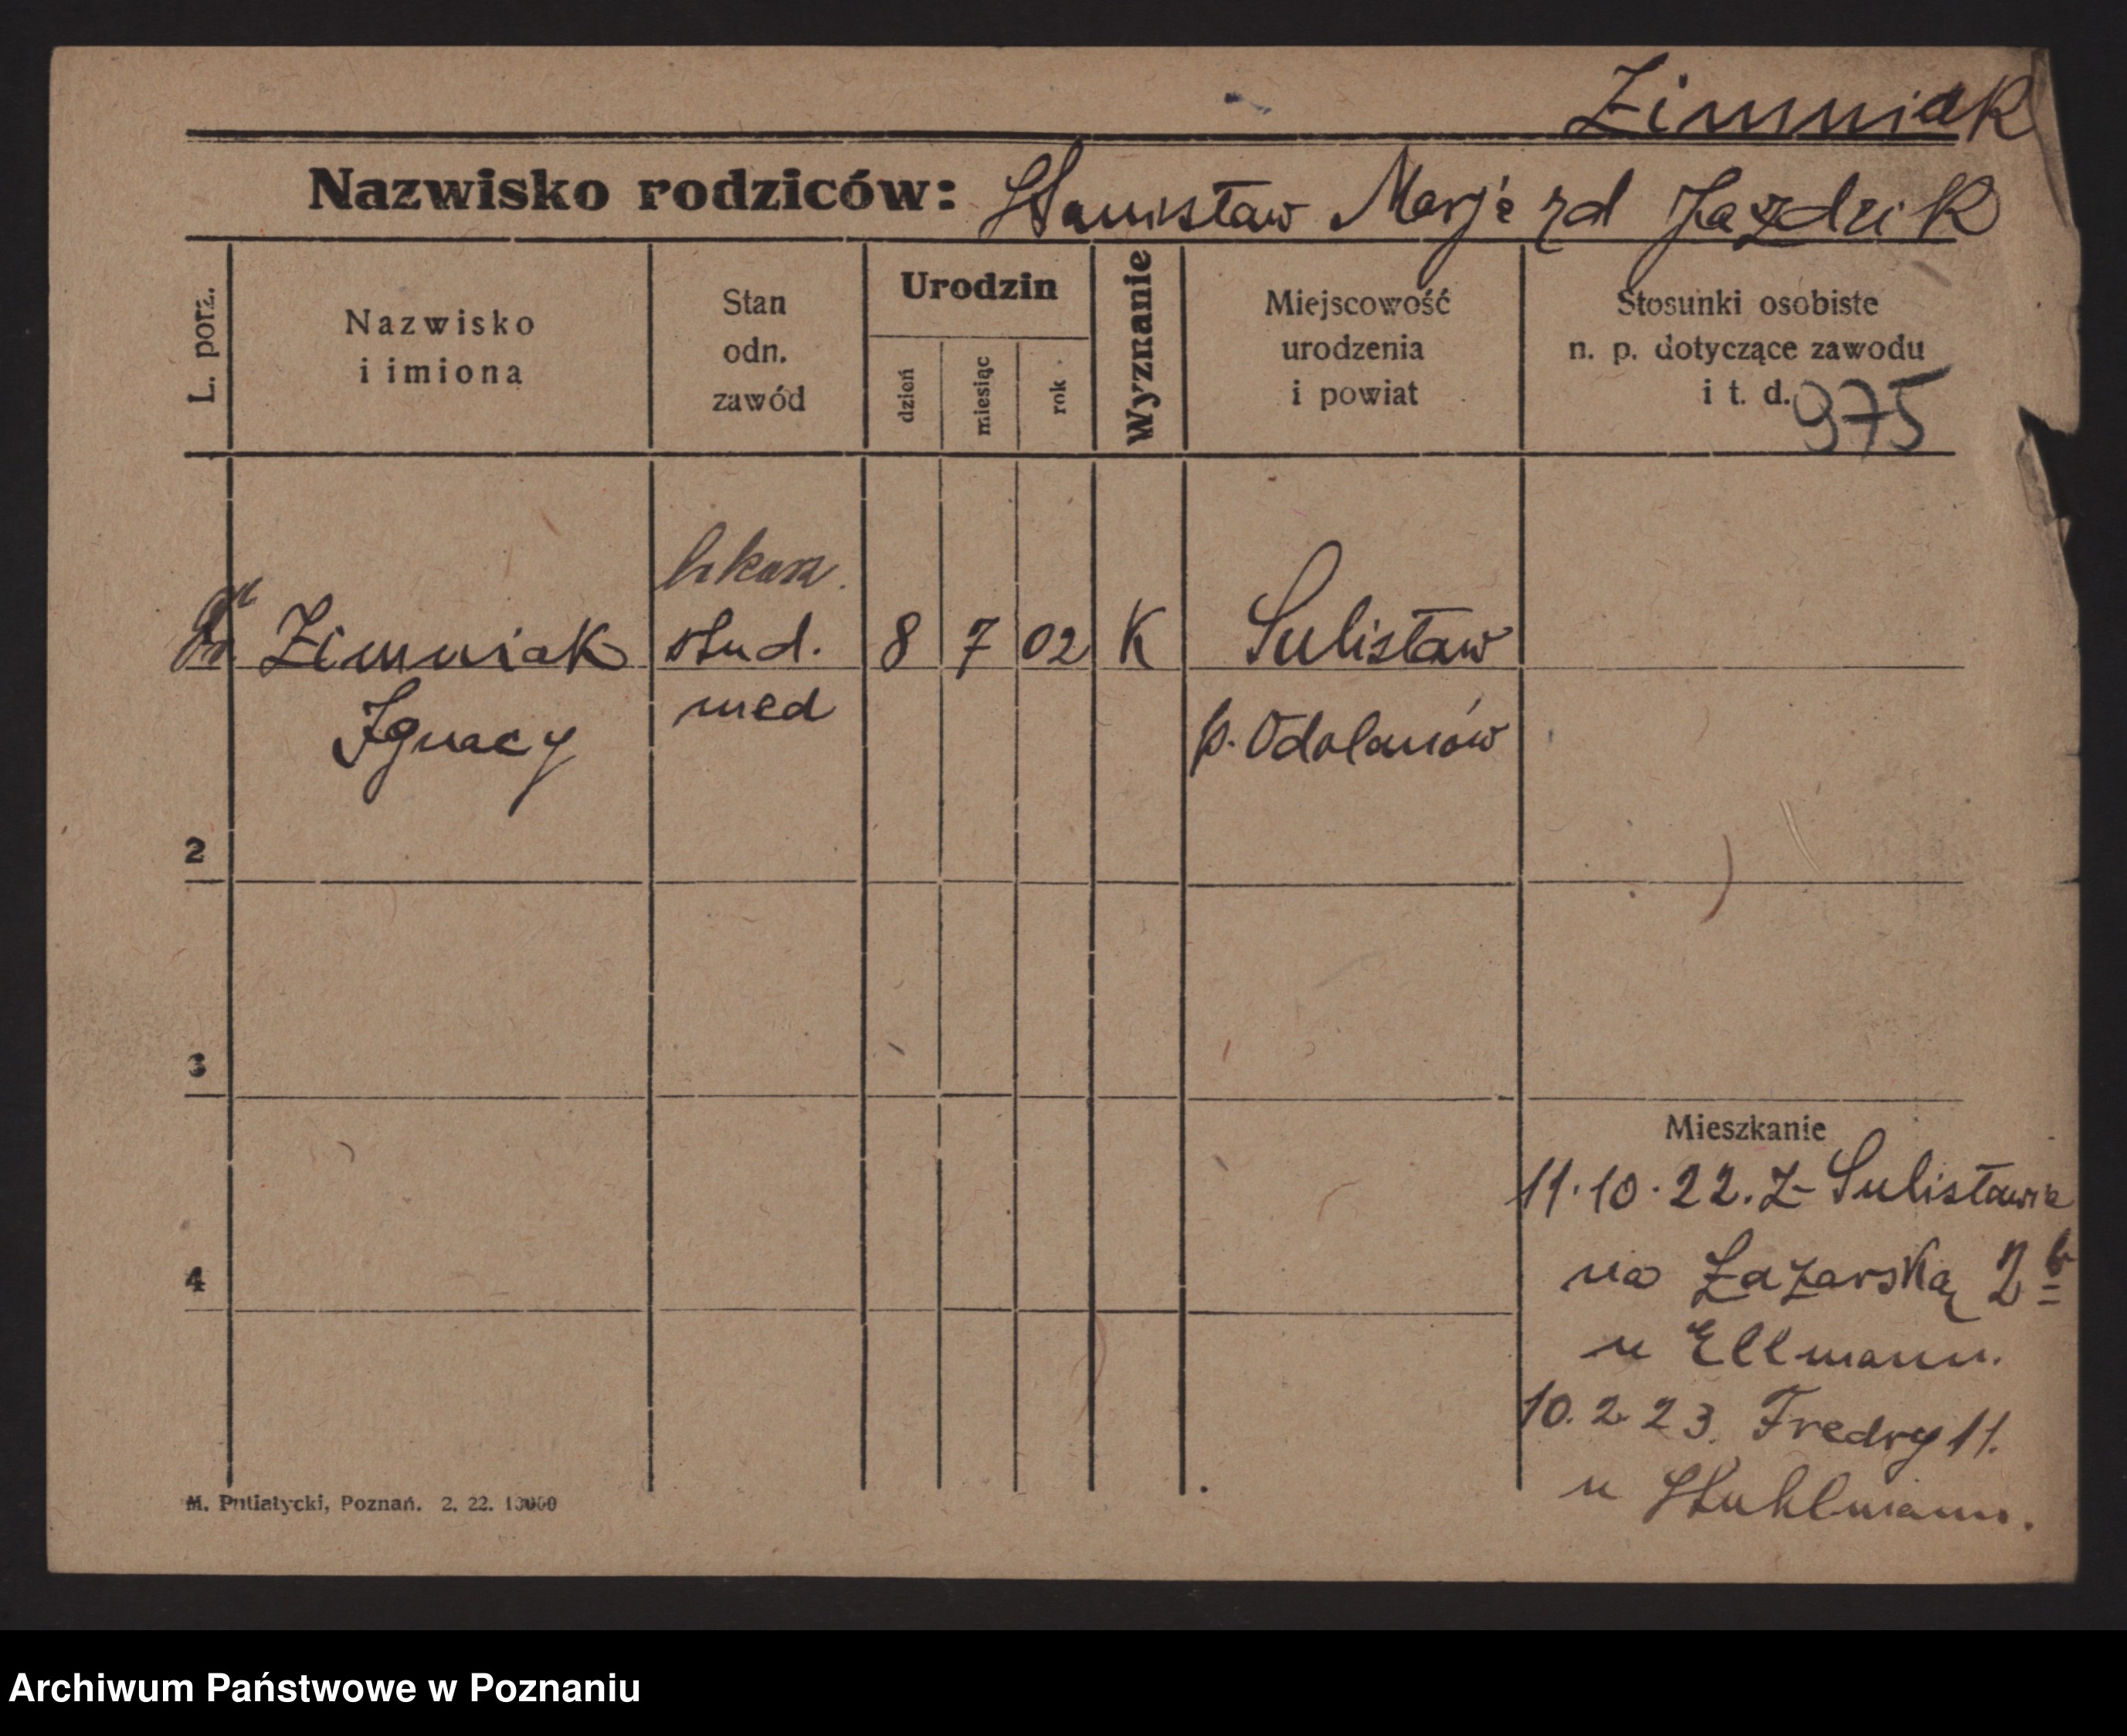 Zimniak
Nazwisko rodziców: Stanisław Marja zd Jazdzik
L. porz.
Nazwisko
i imiona
Stan
odn.
zawód
Urodzin
dzień
miesiąc
rok
Wyznanie
Miejscowość
urodzenia
i powiat
Stosunki osobiste
n. p. dotyczące zawodu
i t. d.
975
lekarz.
Dr Zimniak stud. 8 7 02 K Sulisław
Ignacy med p. Odolanów
2
3
4
Mieszkanie
11.10.22. Z Sulisławia
na Łazarską 2b
u Ellmann.
10.2.23. Fredry 11.
u Stuhlmann.
M. Putiatycki, Poznań. 2. 22. 10000
Archiwum Państwowe w Poznaniu